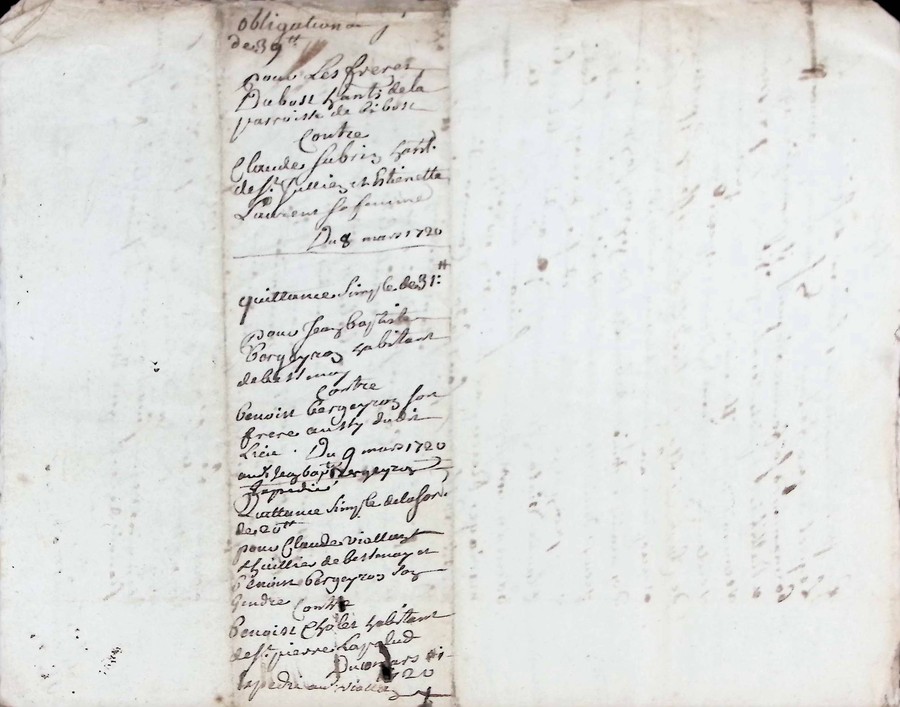 obligation
de 39tt
pour Les freres
Dubost hants de la
parroisse de bibost
Contre
Claude Subrin hant
de st Jullien et Estienette
Laurent sa femme
Du 8 mars 1720
quittance simple de 31tt
pour Jean baptiste
bergeyron habitant
de bessenay
Contre
benoist bergeyron son
frere aussy dudit
Lieu . Du 9 mars 1720
audt Jean bapt bergeyron
Expédié
Quittance simple de la som
de 20tt
pour Claude
thuillier de bessenay et
benoist bergeyron son
gendre Contre
benoist Cholet habitant
de st pierre Lapalud
Du 10 mars
1720
Expedié au